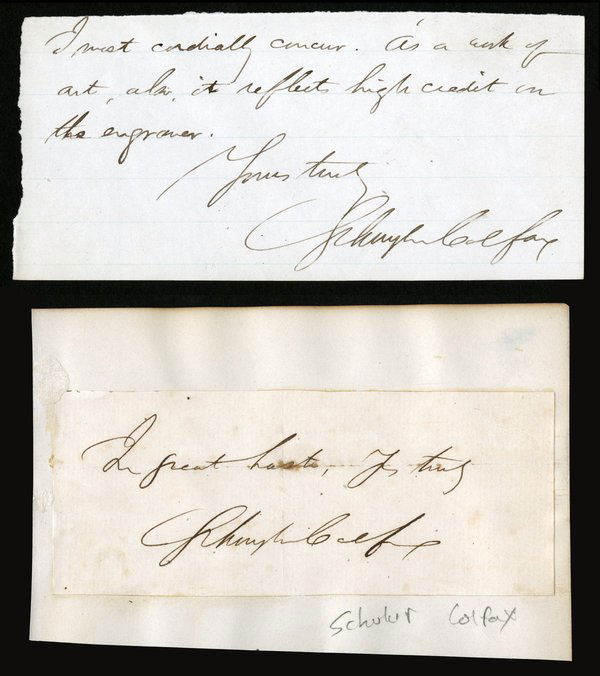 I most cordially concur. As a work of
art, also, it reflects high credit on
the engraver.
Yours truly
Schuyler Colfax
In great haste, Yrs truly
Schuyler Colfax
Schuler Colfax